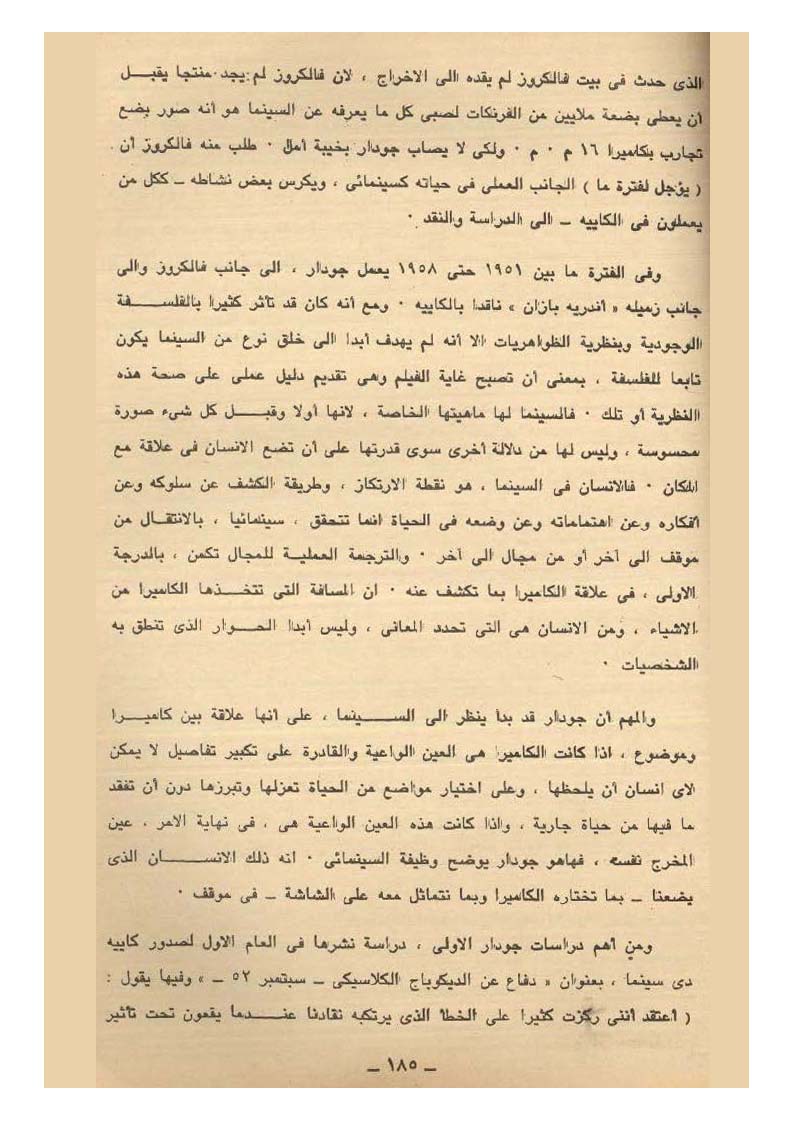 الذى حدث فى بيت فالكروز لم يقده الى الاخراج ، لان فالكروز لم يجد منتجا يقبل
أن يعطى بضعة ملايين من الفرنكات لصبى كل ما يعرفه عن السينما هو أنه صور بضع
تجارب بكاميرا ١٦ م ٠ م ٠ ولكى لا يصاب جودار بخيبة أمل ٠ طلب منه فالكروز أن
( يؤجل لفترة ما ) الجانب العملى فى حياته كسينمائى ، ويكرس بعض نشاطه ــ ككل من
يعملون فى الكاييه ــ الى الدراسة والنقد ٠
وفى الفترة ما بين ١٩٥١ حتى ١٩٥٨ يعمل جودار ، الى جانب فالكروز والى
جانب زميله « أندريه بازان » ناقدا بالكاييه ٠ ومع أنه كان قد تأثر كثيرا بالفلسفة
الوجودية وبنظرية الظواهريات الا أنه لم يهدف أبدا الى خلق نوع من السينما يكون
تابعا للفلسفة ، بمعنى أن تصبح غاية الفيلم وهى تقديم دليل عملى على صحة هذه
النظرية أو تلك ٠ فالسينما لها ماهيتها الخاصة ، لانها أولا وقبل كل شىء صورة
محسوسة ، وليس لها من دلالة أخرى سوى قدرتها على أن تضع الانسان فى علاقة مع
المكان ٠ فالانسان فى السينما ، هو نقطة الارتكاز ، وطريقة الكشف عن سلوكه وعن
أفكاره وعن اهتماماته وعن وضعه فى الحياة انما تتحقق ، سينمائيا ، بالانتقال من
موقف الى آخر أو من مجال الى آخر ٠ والترجمة العملية للمجال تكمن ، بالدرجة
الاولى ، فى علاقة الكاميرا بما تكشف عنه ٠ ان المسافة التى تتخذها الكاميرا من
الاشياء ، ومن الانسان هى التى تحدد المعانى ، وليس أبدا الحوار الذى تنطق به
الشخصيات ٠
والمهم أن جودار قد بدأ ينظر الى السينما ، على أنها علاقة بين كاميرا
وموضوع ، اذا كانت الكاميرا هى العين الواعية والقادرة على تكبير تفاصيل لا يمكن
لاى انسان أن يلحظها ، وعلى اختيار مواضع من الحياة تعزلها وتبرزها دون أن تفقد
ما فيها من حياة جارية ، واذا كانت هذه العين الواعية هى ، فى نهاية الامر ، عين
المخرج نفسه ، فهاهو جودار يوضح وظيفة السينمائى ٠ انه ذلك الانسان الذى
يضعنا ــ بما تختاره الكاميرا وبما نتماثل معه على الشاشة ــ فى موقف ٠
ومن أهم دراسات جودار الاولى ، دراسة نشرها فى العام الاول لصدور كاييه
دى سينما ، بعنوان « دفاع عن الديكوباج الكلاسيكى ــ سبتمبر ٥٢ ــ » وفيها يقول :
( أعتقد أننى ركزت كثيرا على الخطأ الذى يرتكبه نقادنا عندما يقعون تحت تأثير
ــ ١٨٥ ــ